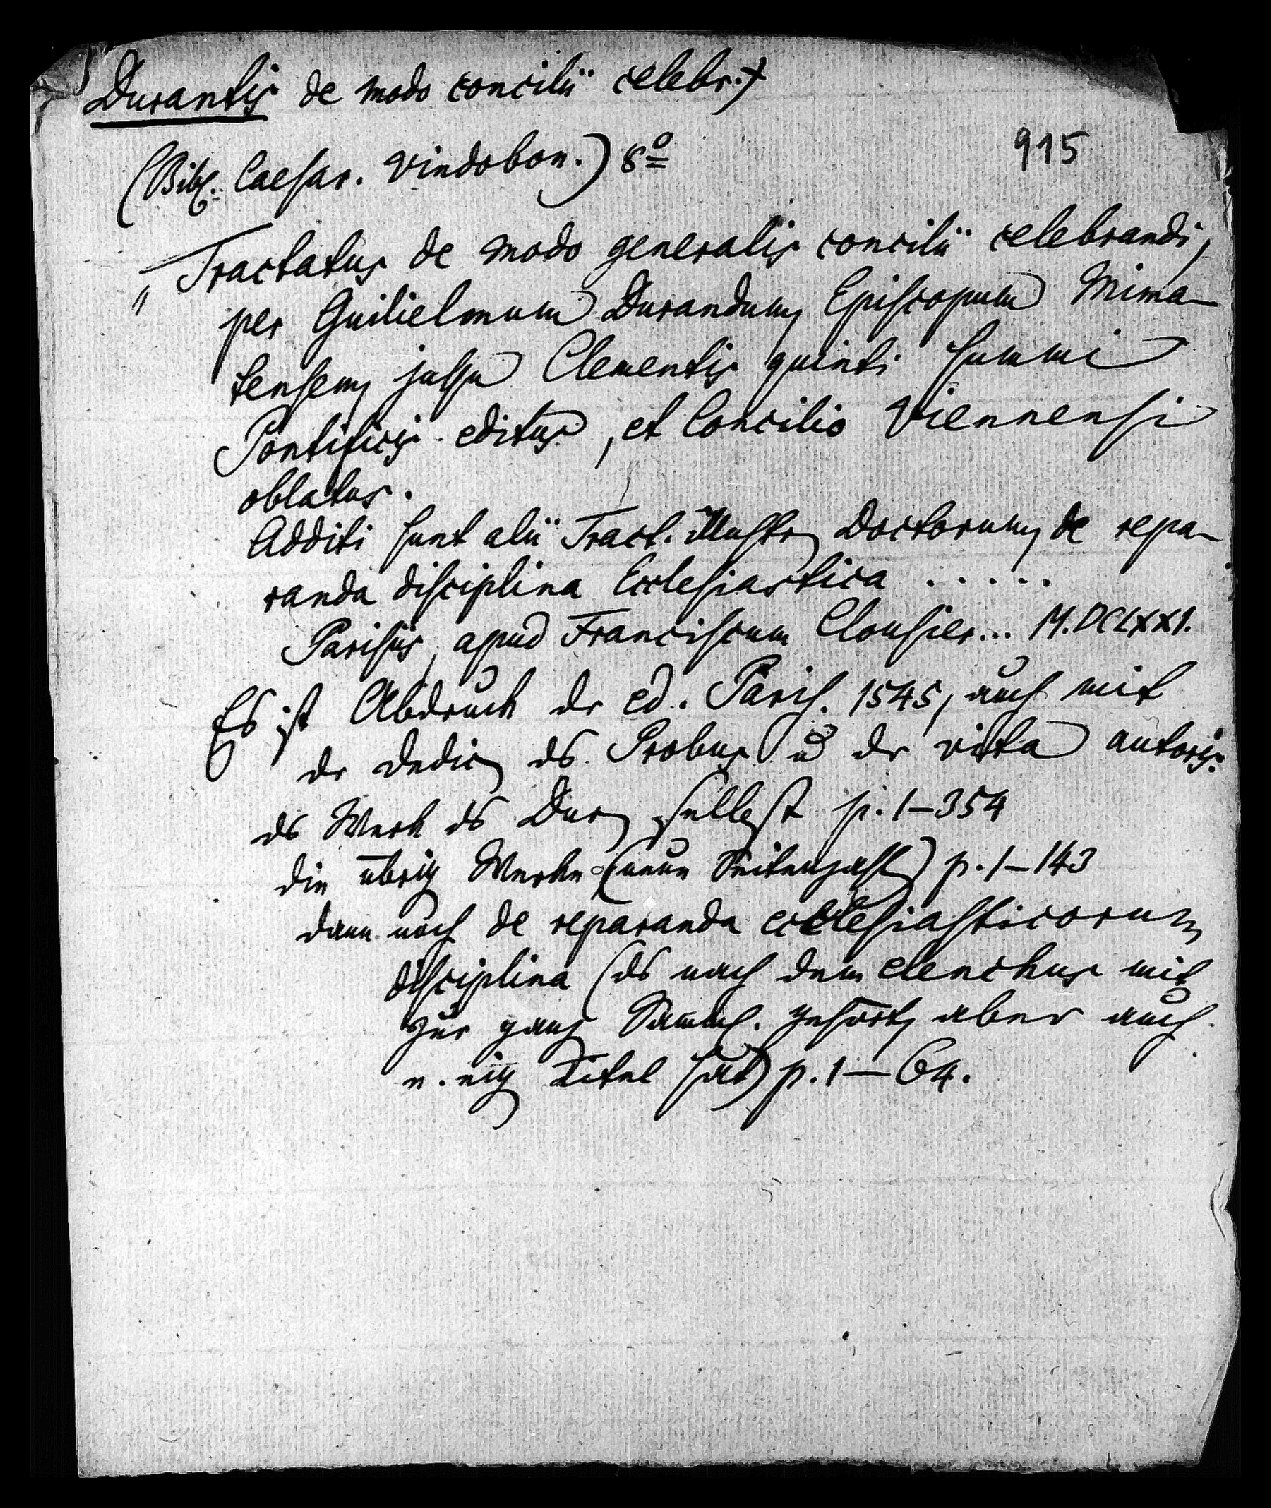 Durantis de modo concilii celebr.
915
(Bibl. Caesar. Vindobon.) 8º
„Tractatus de modo generalis concilii celebrandi,
per Guilielmum Durandum Episcopum Mima-
tensem jussu Clementis quinti summi
Pontificis editus, et Concilio Viennensi
oblatus.
Additi sunt alii Tract. illustr Doctorum de repa-
randa disciplina Ecclesiastica .....
Parisiis, apud Franciscum Clousier... M.DCLXXI.
Es ist Abdruck dr ed. Paris. 1545, auch mit
dr Dedic ds Probus u dr vita autoris.
ds Werk ds Dur selbst p. 1–354
die übrig Werke (neue Seitenzahl) p. 1–143
dann noch de reparanda ecclesiasticorum
disciplina (ds nach dem elenchus mit
zur ganz Samml. gehört, aber auch
n. eig Titel hat) p. 1–64.